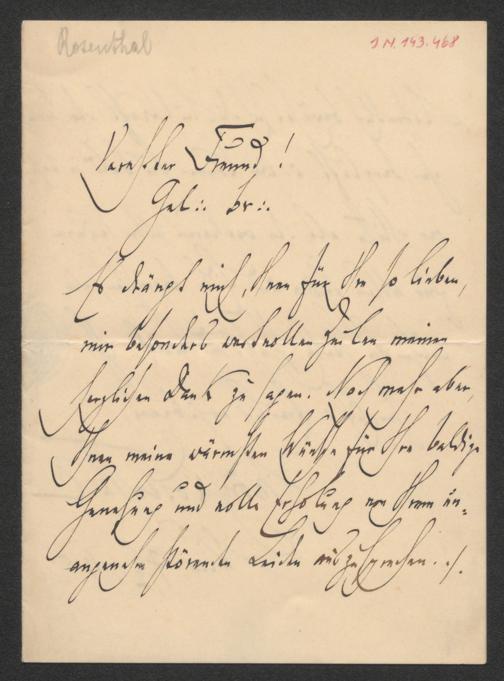 Rosenthal
I.N. 143.468
Verehrter Freund!
Gel∴ Br∴
Es drängt mich, Ihnen für Ihre so lieben,
mir besonders wertvollen Zeilen meinen
herzlichen Dank zu sagen. Noch mehr aber,
Ihnen meine wärmsten Wünsche für Ihre baldige
Genesung und volle Erholung von Ihrem un-
angenehm störenden Leiden auszusprechen. ./.